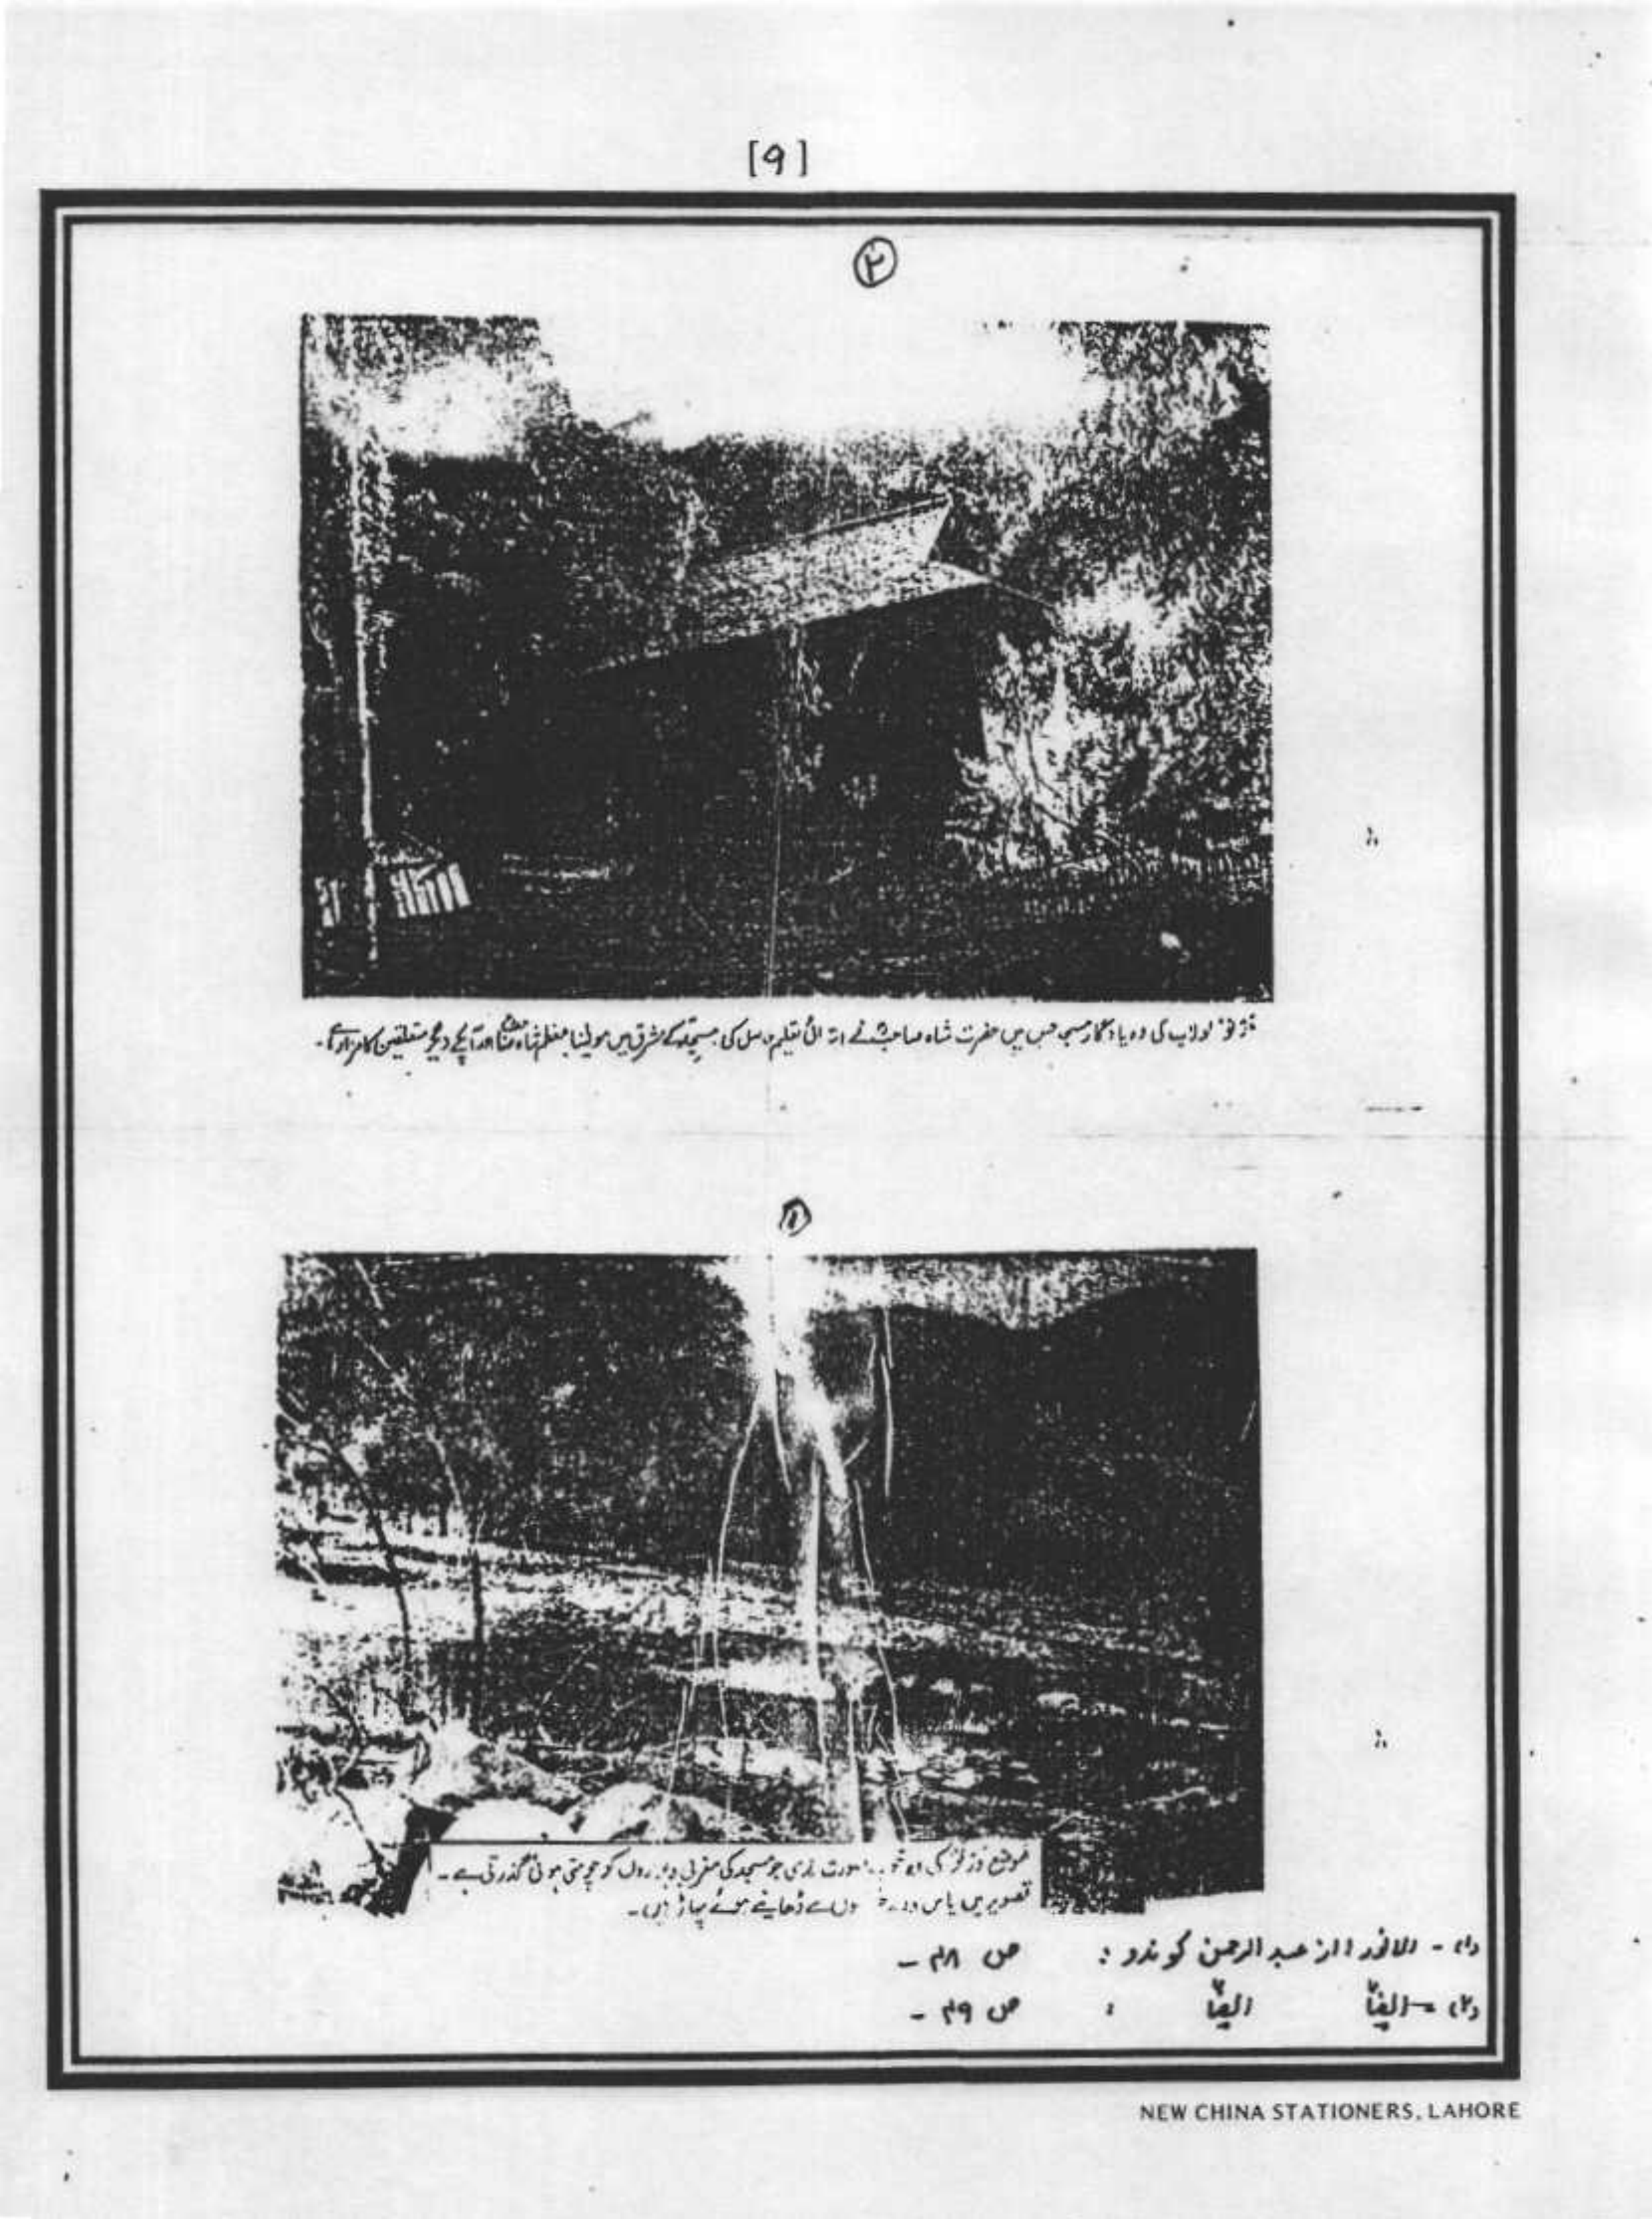 [9]
۲
لولاب کی وہ یادگار مسجد جس میں حضرت شاہ صاحبؒ نے ابتدائی تعلیم حاصل کی مسجد کے مشرق میں مولینا معظم شاہ صاحبؒ اور آپکے دیگر متعلقین کا مزار ہے۔
۱
موضع کی وہ صورت ندی جو مسجد کی مغربی دیواروں کو چومتی ہوئی گذرتی ہے۔
تصویر میں پاس ڈھانپے ہوئے پہاڑ ہیں۔
(۱)۔ الانور از عبد الرحمن کوندو : ص ۴۸۔
(۲)۔ ایضاً ایضاً : ص ۴۹۔
NEW CHINA STATIONERS, LAHORE